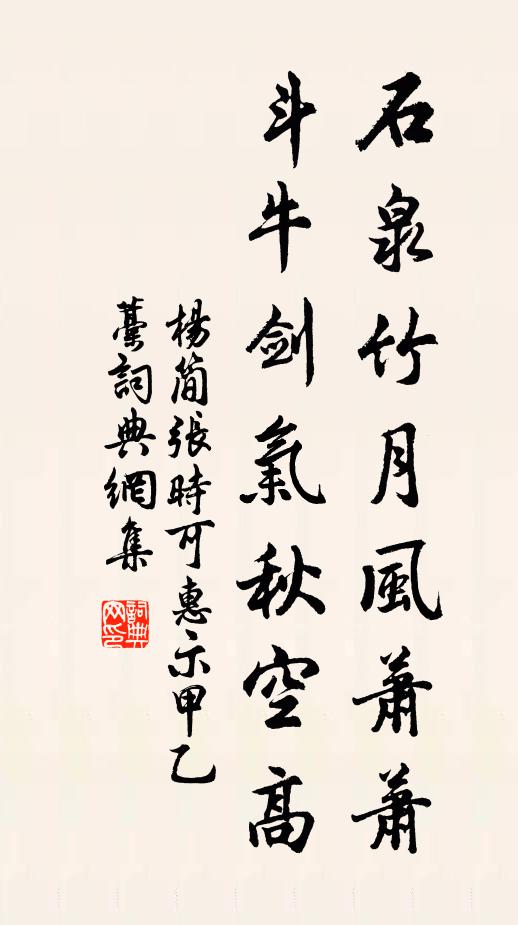 石泉竹月風蕭蕭
斗牛劍氣秋空高
楊簡張時可惠示甲乙
藁詞典網集
詞典網印